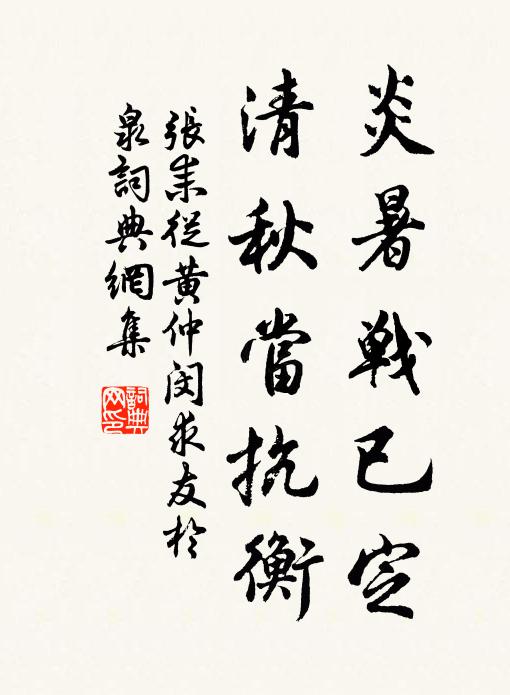 炎暑戦已定
清秋當抗衡
張耒從黃仲閔求友於
泉詞典網集
詞典
网印